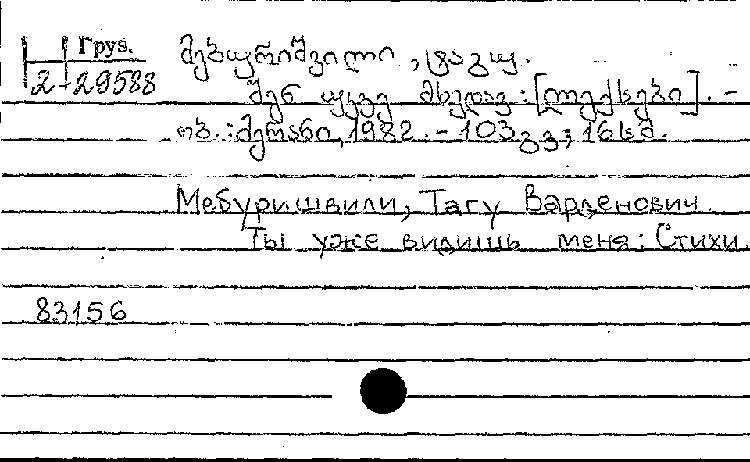 Груз.
2-29588
მებურიშვილი, ტაგუ.
შენ უკვე მხედავ : [ლექსები]. -
თბ. : მერანი, 1982. - 103 გვ; 16 სმ.
Мебуришвили, Тагу Варденович.
Ты уже видишь меня: Стихи.
83156